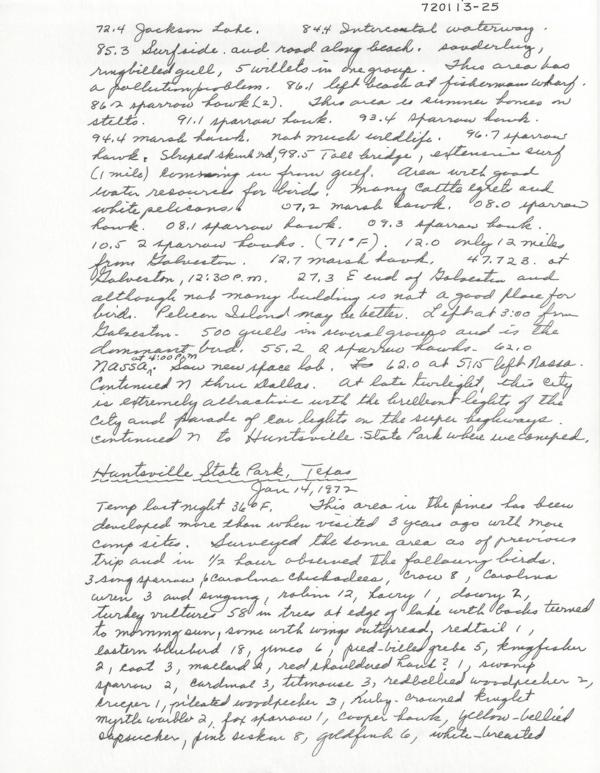 720113-25
72.4 Jackson Lake. 84.4 Intercoastal waterway.
85.3 Surfside and road along beach. sanderling,
ringbilled gull, 5 willets in one group. This area has
a pollution problem. 86.1 left beach at fisherman wharf.
86.2 sparrow hawk (2). This area is summer homes on
stilts. 91.1 sparrow hawk. 93.4 sparrow hawk.
94.4 marsh hawk. not much wildlife. 96.7 sparrow
hawk. Striped skunk rd, 98.5 Toll bridge, extensive surf
(1 mile) comming in from gulf. Area with good
water resources for birds. Many cattle egrets and
white pelicans. 07.2 marsh hawk. 08.0 sparrow
hawk. 08.1 sparrow hawk. 09.3 sparrow hawk.
10.5 2 sparrow hawks. (71°F). 12.0 only 12 miles
from Galveston. 12.7 marsh hawk. 47.723. at
Galveston, 12:30 P.M. 27.3 E end of Galveston and
although not many building is not a good place for
bird. Pelican Island may be better. Left at 3:00 from
Galveston. 500 gulls in several groups and is the
dominant bird. 55.2 2 sparrow hawks. 62.0
NASSA at 4:00 P.M. Saw new space lab. 62.0 at 5:15 left Nassa.
Continued N thru Dallas. At late twilight, this city
is extremely attractive with the brilliant lights of the
city and parade of car lights on the super highways.
continued N to Huntsville State Park where we camped.
Huntsville State Park, Texas
Jan 14, 1972
Temp last night 36°F. This area in the pines has been
developed more than when visited 3 years ago with more
camp sites. Surveyed the same area as of previous
trip and in 1/2 hour observed the following birds.
3 song sparrow, 6 Carolina chickadees, crow 8, Carolina
wren 3 and singing, robin 12, hairy 1, downy 2,
turkey vultures 58 in trees at edge of lake with backs turned
to morning sun, some with wings outspread, redtail 1,
eastern bluebird 18, junco 6, pied-billed grebe 5, kingfisher
2, coot 3, mallard 2, red shouldered hawk? 1, swamp
sparrow 2, cardinal 3, titmouse 3, redbellied woodpecker 2,
creeper 1, pileated woodpecker 3, Ruby-crowned kinglet
myrtle warbler 2, fox sparrow 1, cooper hawk, yellow-bellied
sapsucker, pine siskin 8, goldfinch 6, white-breasted